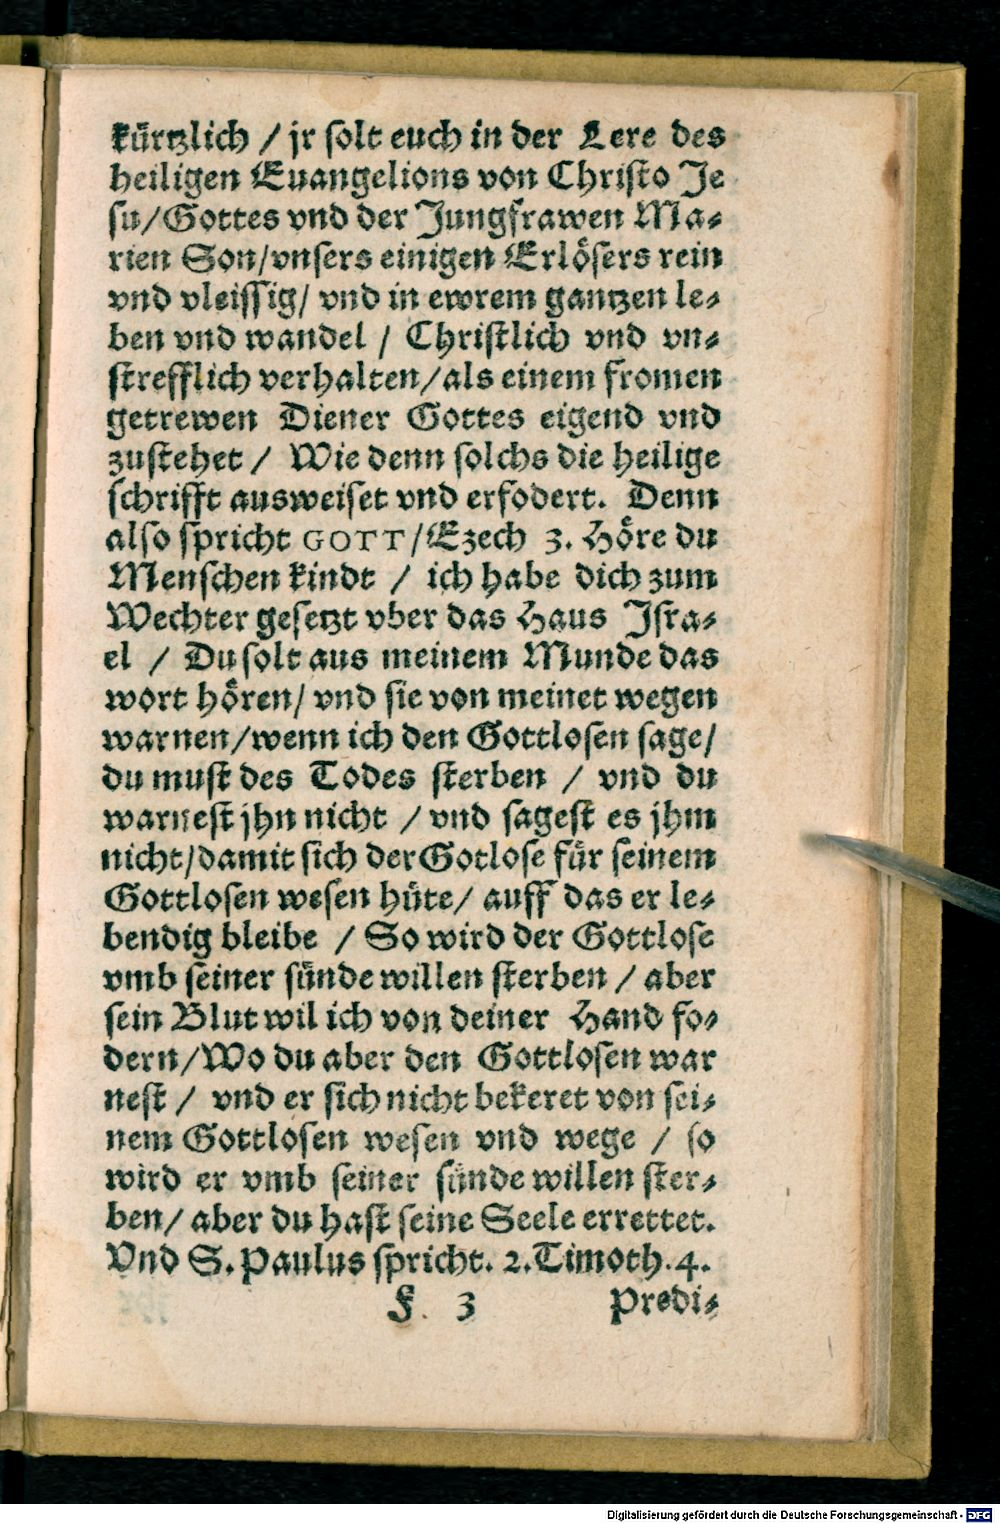 kürtzlich / jr solt euch in der Lere des
heiligen Euangelions von Christo Je
su/Gottes vnd der Jungfrawen Ma-
rien Son/vnsers einigen Erlösers rein
vnd vleissig/ vnd in ewrem gantzen le-
ben vnd wandel / Christlich vnd vn-
strefflich verhalten/als einem fromen
getrewen Diener Gottes eigend vnd
zustehet / Wie denn solchs die heilige
schrifft ausweiset vnd erfodert. Denn
also spricht GOTT/Ezech 3. Höre du
Menschen kindt / ich habe dich zum
Wechter gesetzt vber das Haus Isra-
el / Du solt aus meinem Munde das
wort hören/ vnd sie von meinet wegen
warnen/wenn ich den Gottlosen sage/
du must des Todes sterben / vnd du
warnest jhn nicht / vnd sagest es jhm
nicht/damit sich der Gotlose für seinem
Gottlosen wesen hüte/ auff das er le-
bendig bleibe / So wird der Gottlose
vmb seiner sünde willen sterben / aber
sein Blut wil ich von deiner Hand fo-
dern/Wo du aber den Gottlosen war
nest / vnd er sich nicht bekeret von sei-
nem Gottlosen wesen vnd wege / so
wird er vmb seiner sünde willen ster-
ben/ aber du hast seine Seele errettet.
Vnd S. Paulus spricht. 2. Timoth. 4.
F 3 Predi-
Digitalisierung gefördert durch die Deutsche Forschungsgemeinschaft - DFG